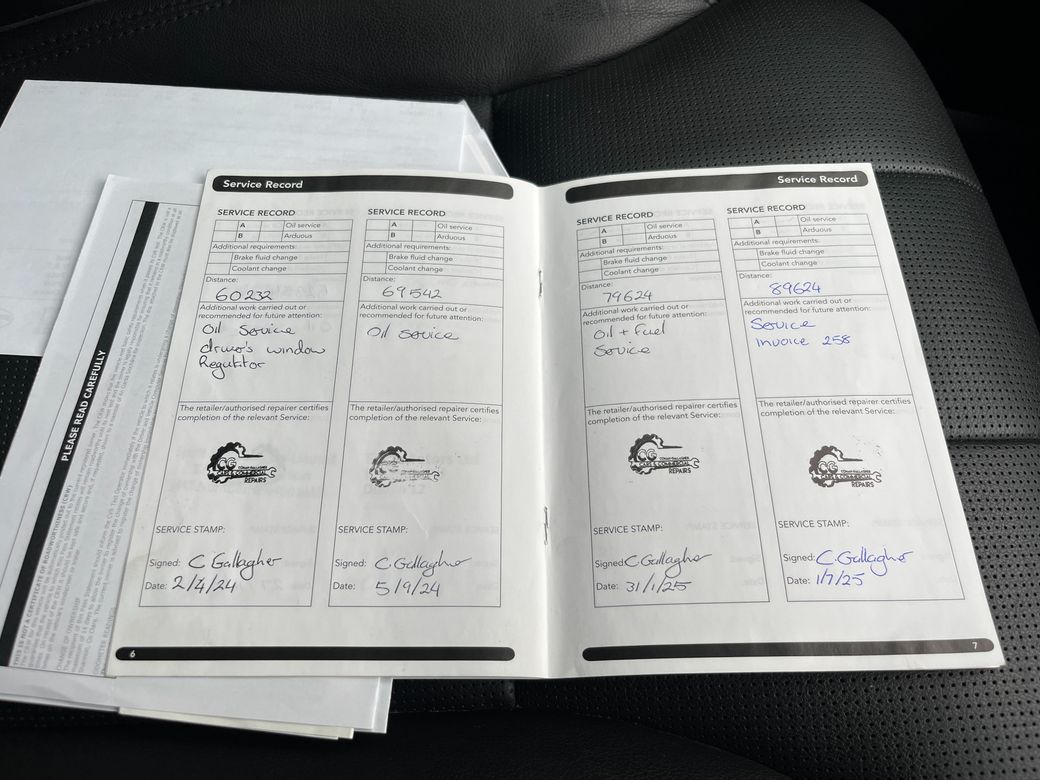 Service Record
SERVICE RECORD
A Oil service
B Arduous
Additional requirements:
Brake fluid change
Coolant change
Distance:
60232
Additional work carried out or
recommended for future attention:
Oil Service
driver's window
Regutitor
The retailer/authorised repairer certifies
completion of the relevant Service:
CG
CARS & COMMERCIAL
REPAIRS
SERVICE STAMP:
Signed: C Gallagher
Date: 2/4/24
SERVICE RECORD
A Oil service
B Arduous
Additional requirements:
Brake fluid change
Coolant change
Distance:
69542
Additional work carried out or
recommended for future attention:
Oil Service
The retailer/authorised repairer certifies
completion of the relevant Service:
CARS & COMMERCIAL
REPAIRS
SERVICE STAMP:
Signed: C Gallagher
Date: 5/9/24
6
Service Record
SERVICE RECORD
A Oil service
B Arduous
Additional requirements:
Brake fluid change
Coolant change
Distance:
79624
Additional work carried out or
recommended for future attention:
Oil + Fuel
Service
The retailer/authorised repairer certifies
completion of the relevant Service:
CG
CARS & COMMERCIAL
REPAIRS
SERVICE STAMP:
Signed: C Gallagher
Date: 31/1/25
SERVICE RECORD
A Oil service
B Arduous
Additional requirements:
Brake fluid change
Coolant change
Distance:
89624
Additional work carried out or
recommended for future attention:
Service
Invoice 258
The retailer/authorised repairer certifies
completion of the relevant Service:
CG
CARS & COMMERCIAL
REPAIRS
SERVICE STAMP:
Signed: C Gallagher
Date: 1/7/25
7
PLEASE READ CAREFULLY
THIS IS NOT A CERTIFICATE OF ROADWORTHINESS (CRW)